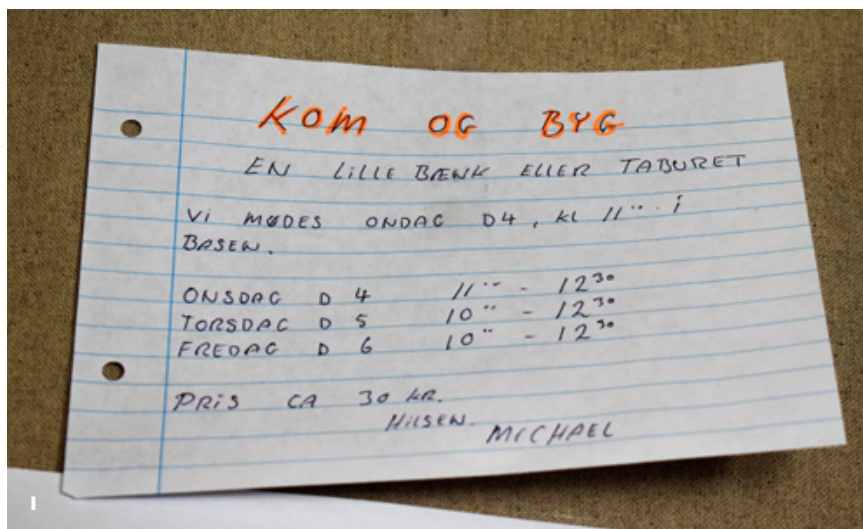 KOM OG BYG
EN LILLE BÆNK ELLER TABURET
Vi MØDES ONDAG D4, KL 11⁰⁰ i
BASEN.
ONSDAG D 4 11⁰⁰ - 12³⁰
TORSDAG D 5 10⁰⁰ - 12³⁰
FREDAG D 6 10⁰⁰ - 12³⁰
PRiS CA 30 KR.
HILSEN.
MICHAEL
I